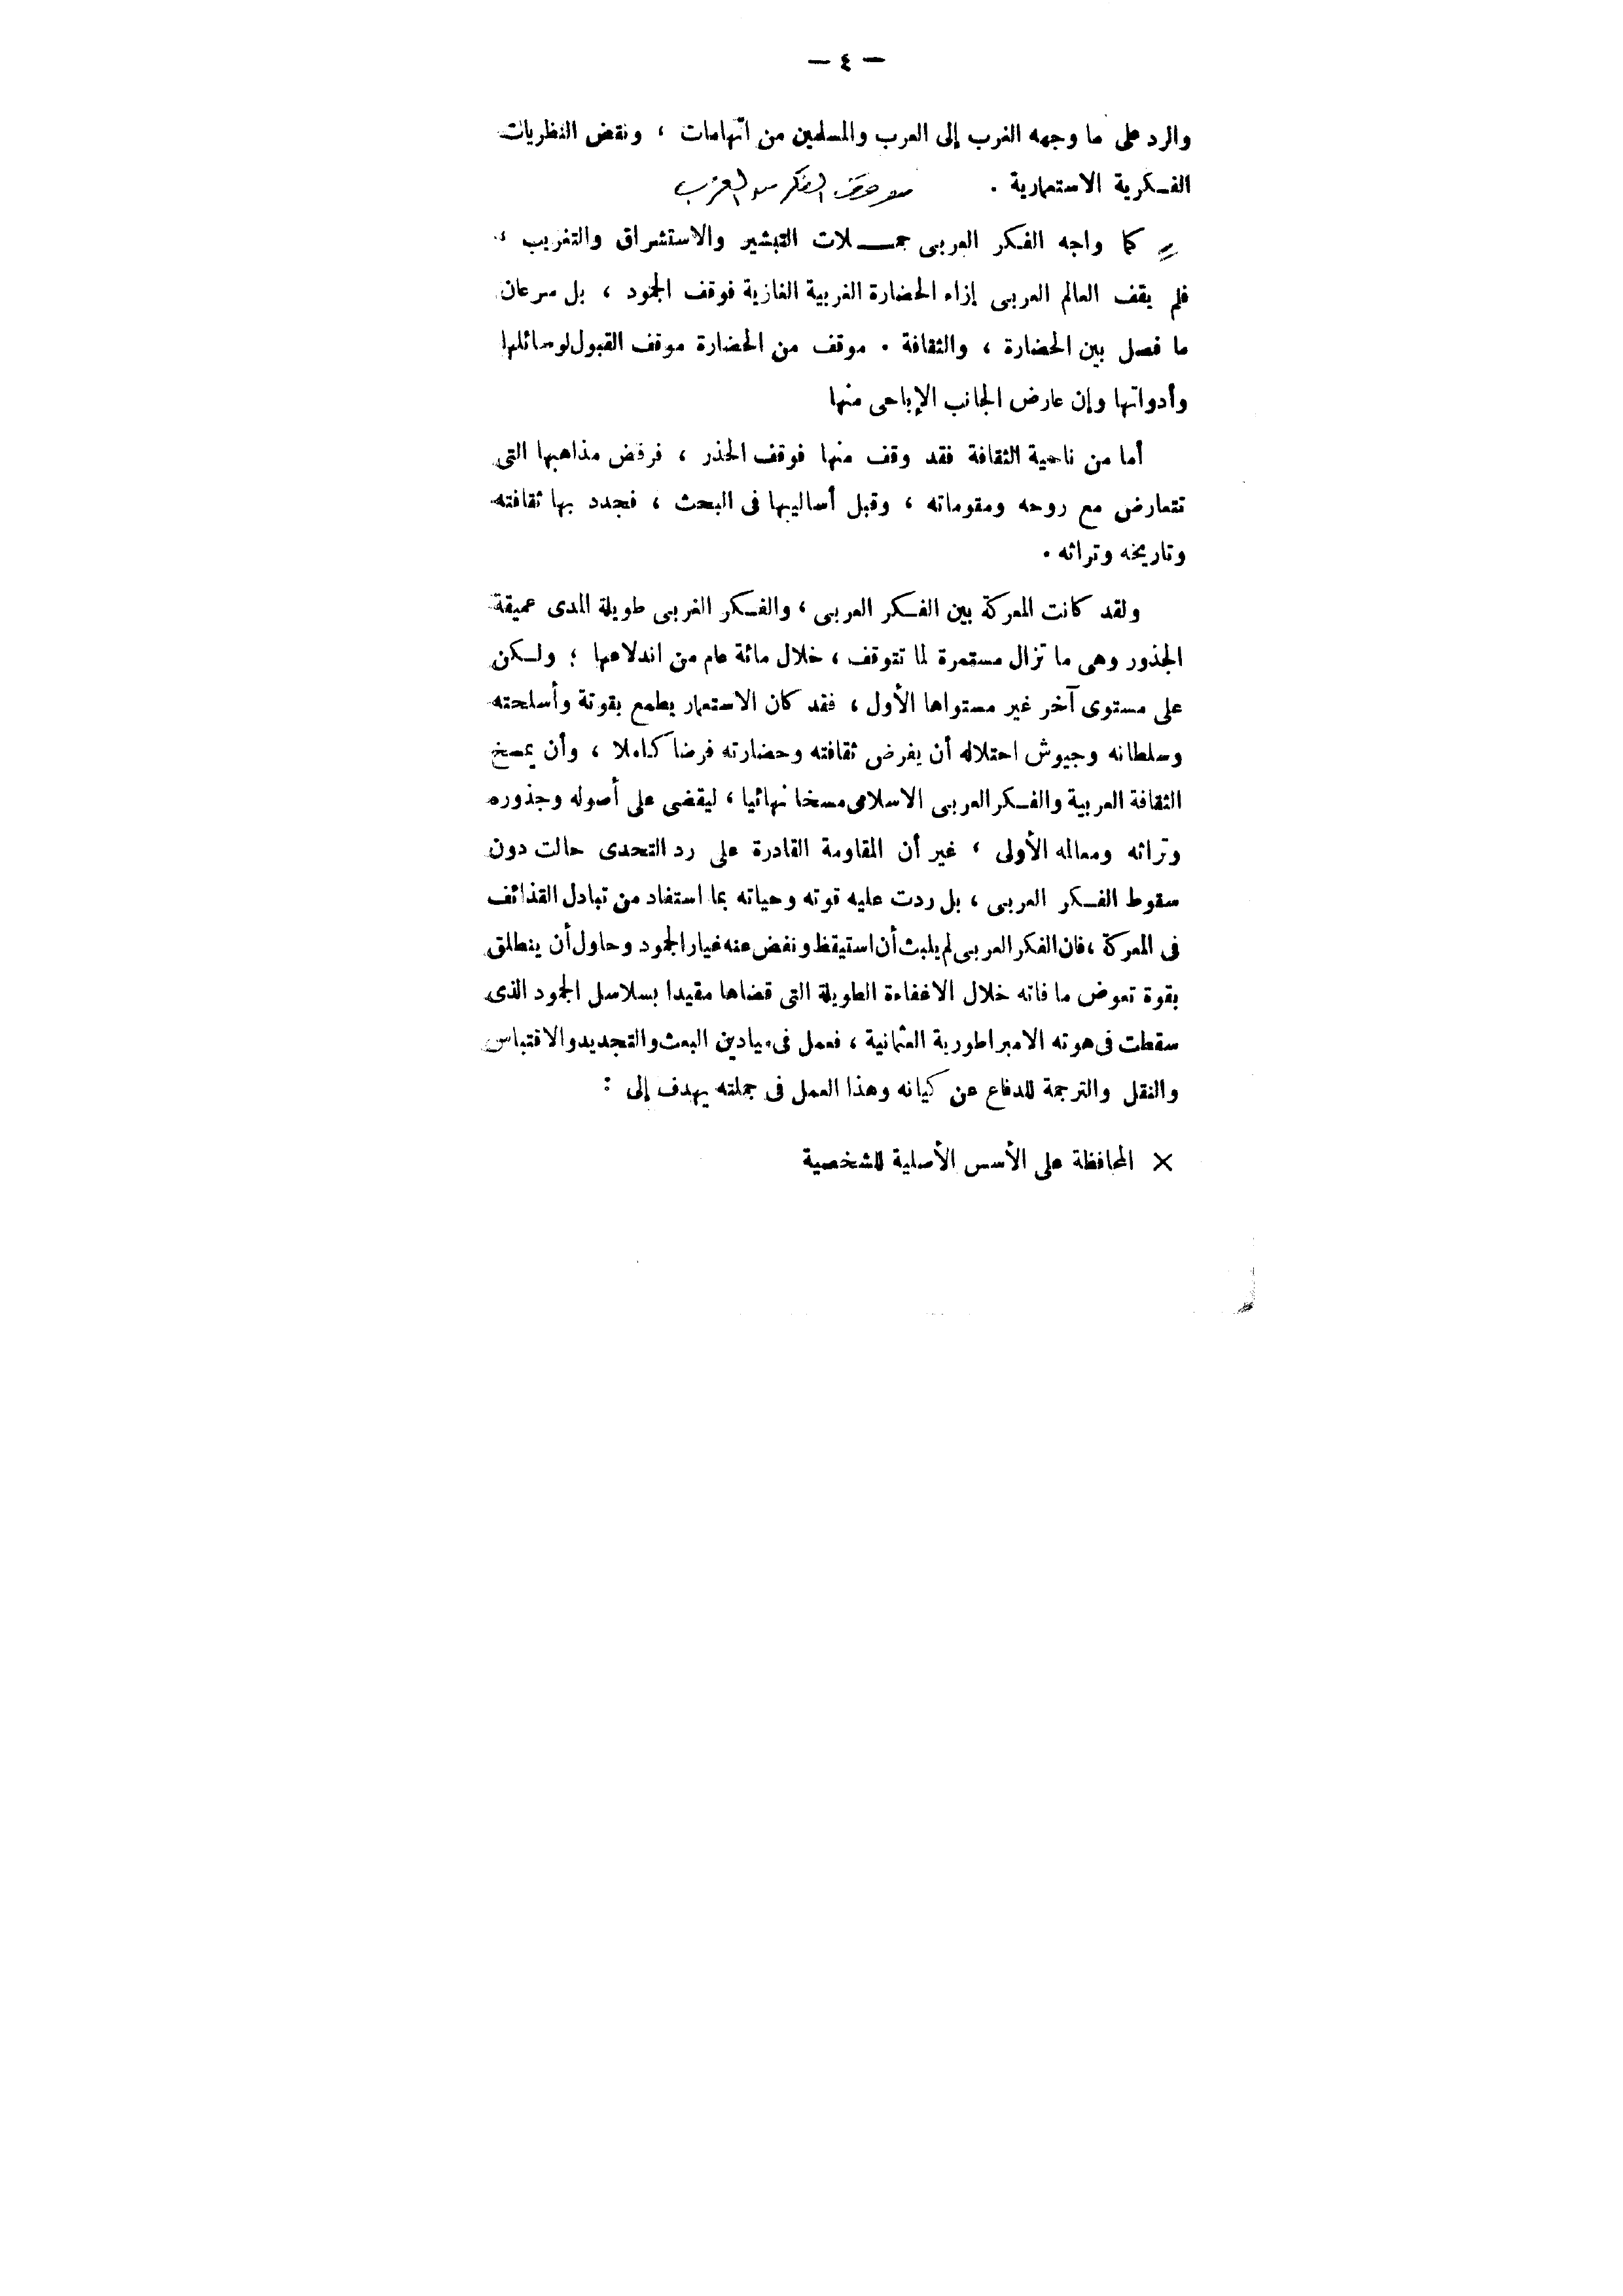 — ٤ —
والرد على ما وجهه الغرب إلى العرب والمسلمين من اتهامات ، ونقض النظريات
الفكرية الاستعمارية . موقف الفكر من الغرب
كما واجه الفكر العربى حملات التبشير والاستشراق والتغريب ،
فلم يقف العالم العربى إزاء الحضارة الغربية الغازية فوقف الجمود ، بل سرعان
ما فصل بين الحضارة ، والثقافة . موقف من الحضارة موقف القبول لوسائلها
وأدواتها وإن عارض الجانب الإباحى منها
أما من ناحية الثقافة فقد وقف منها فوقف الحذر ، فرفض مذاهبها التى
تتعارض مع روحه ومقوماته ، وقبل أساليبها فى البحث ، فجدد بها ثقافته
وتاريخه وتراثه .
ولقد كانت المعركة بين الفكر العربى ، والفكر الغربى طويلة المدى عميقة
الجذور وهى ما تزال مستمرة لما تتوقف ، خلال مائة عام من اندلاعها ؛ ولكن
على مستوى آخر غير مستواها الأول ، فقد كان الاستعمار يطمع بقوتة وأسلحته
وسلطانه وجيوش احتلاله أن يفرض ثقافته وحضارته فرضا كاملا ، وأن يمسخ
الثقافة العربية والفكر العربى الاسلامى مسخا نهائيا ، ليقضى على أصوله وجذوره
وتراثه ومعالمه الأولى ، غير أن المقاومة القادرة على رد التحدى حالت دون
سقوط الفكر العربى ، بل ردت عليه قوته وحياته بما استفاد من تبادل القذائف
فى المعركة ، فان الفكر العربى لم يلبث أن استيقظ ونفض عنه غبار الجمود وحاول أن ينطلق
بقوة تعوض ما فاته خلال الاغفاءة الطويلة التى قضاها مقيدا بسلاسل الجمود الذى
سقطت فى هوته الامبراطورية العثمانية ، فعمل فى ميادين البعث والتجديد والاقتباس
والنقل والترجمة للدفاع عن كيانه وهذا العمل فى جملته يهدف إلى :
× المحافظة على الأسس الأصلية للشخصية